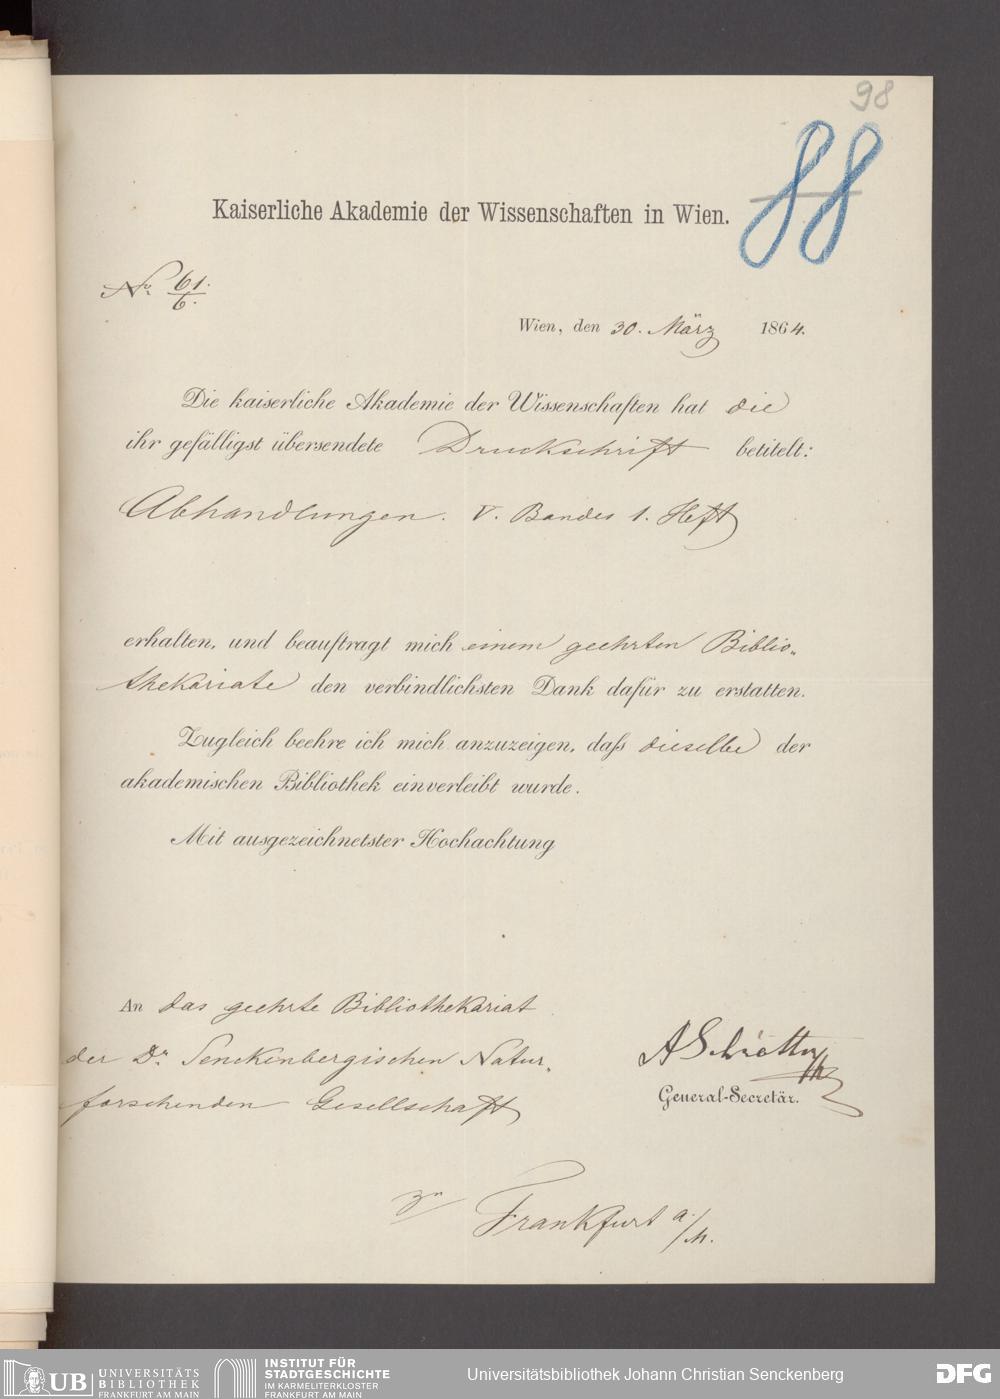 98
88
Kaiserliche Akademie der Wissenschaften in Wien.
No. 61./6.
Wien, den 30. März 1864.
Die kaiserliche Akademie der Wissenschaften hat die
ihr gefälligst übersendete Druckschrift betitelt:
Abhandlungen. V. Bandes 1. Heft
erhalten, und beauftragt mich einem geehrten Biblio-
thekariate den verbindlichsten Dank dafür zu erstatten.
Zugleich beehre ich mich anzuzeigen, daß dieselbe der
akademischen Bibliothek einverleibt wurde.
Mit ausgezeichnetster Hochachtung
An das geehrte Bibliothekariat
der Dr. Senckenbergischen Natur-
forschenden Gesellschaft
ASchrötter
General-Secretär.
zu Frankfurt a./M.
UB UNIVERSITÄTS
BIBLIOTHEK
FRANKFURT AM MAIN
INSTITUT FÜR
STADTGESCHICHTE
IM KARMELITERKLOSTER
FRANKFURT AM MAIN
Universitätsbibliothek Johann Christian Senckenberg
DFG